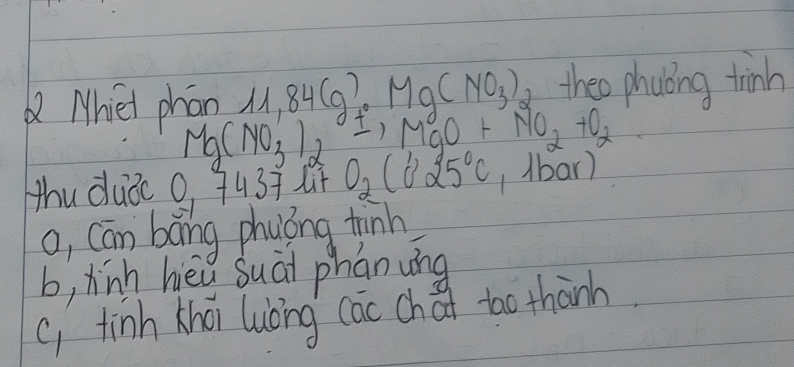 2 Nhiệt phân 11,84(g) Mg(NO3)2 theo phương trình
Mg(NO3)2 t°→ MgO + NO2 + O2
thu được 0,7437 lít O2 (ở 25°C, 1bar)
a, Cân bằng phương trình
b, tính hiệu suất phản ứng
c, tính khối lượng các chất tạo thành.